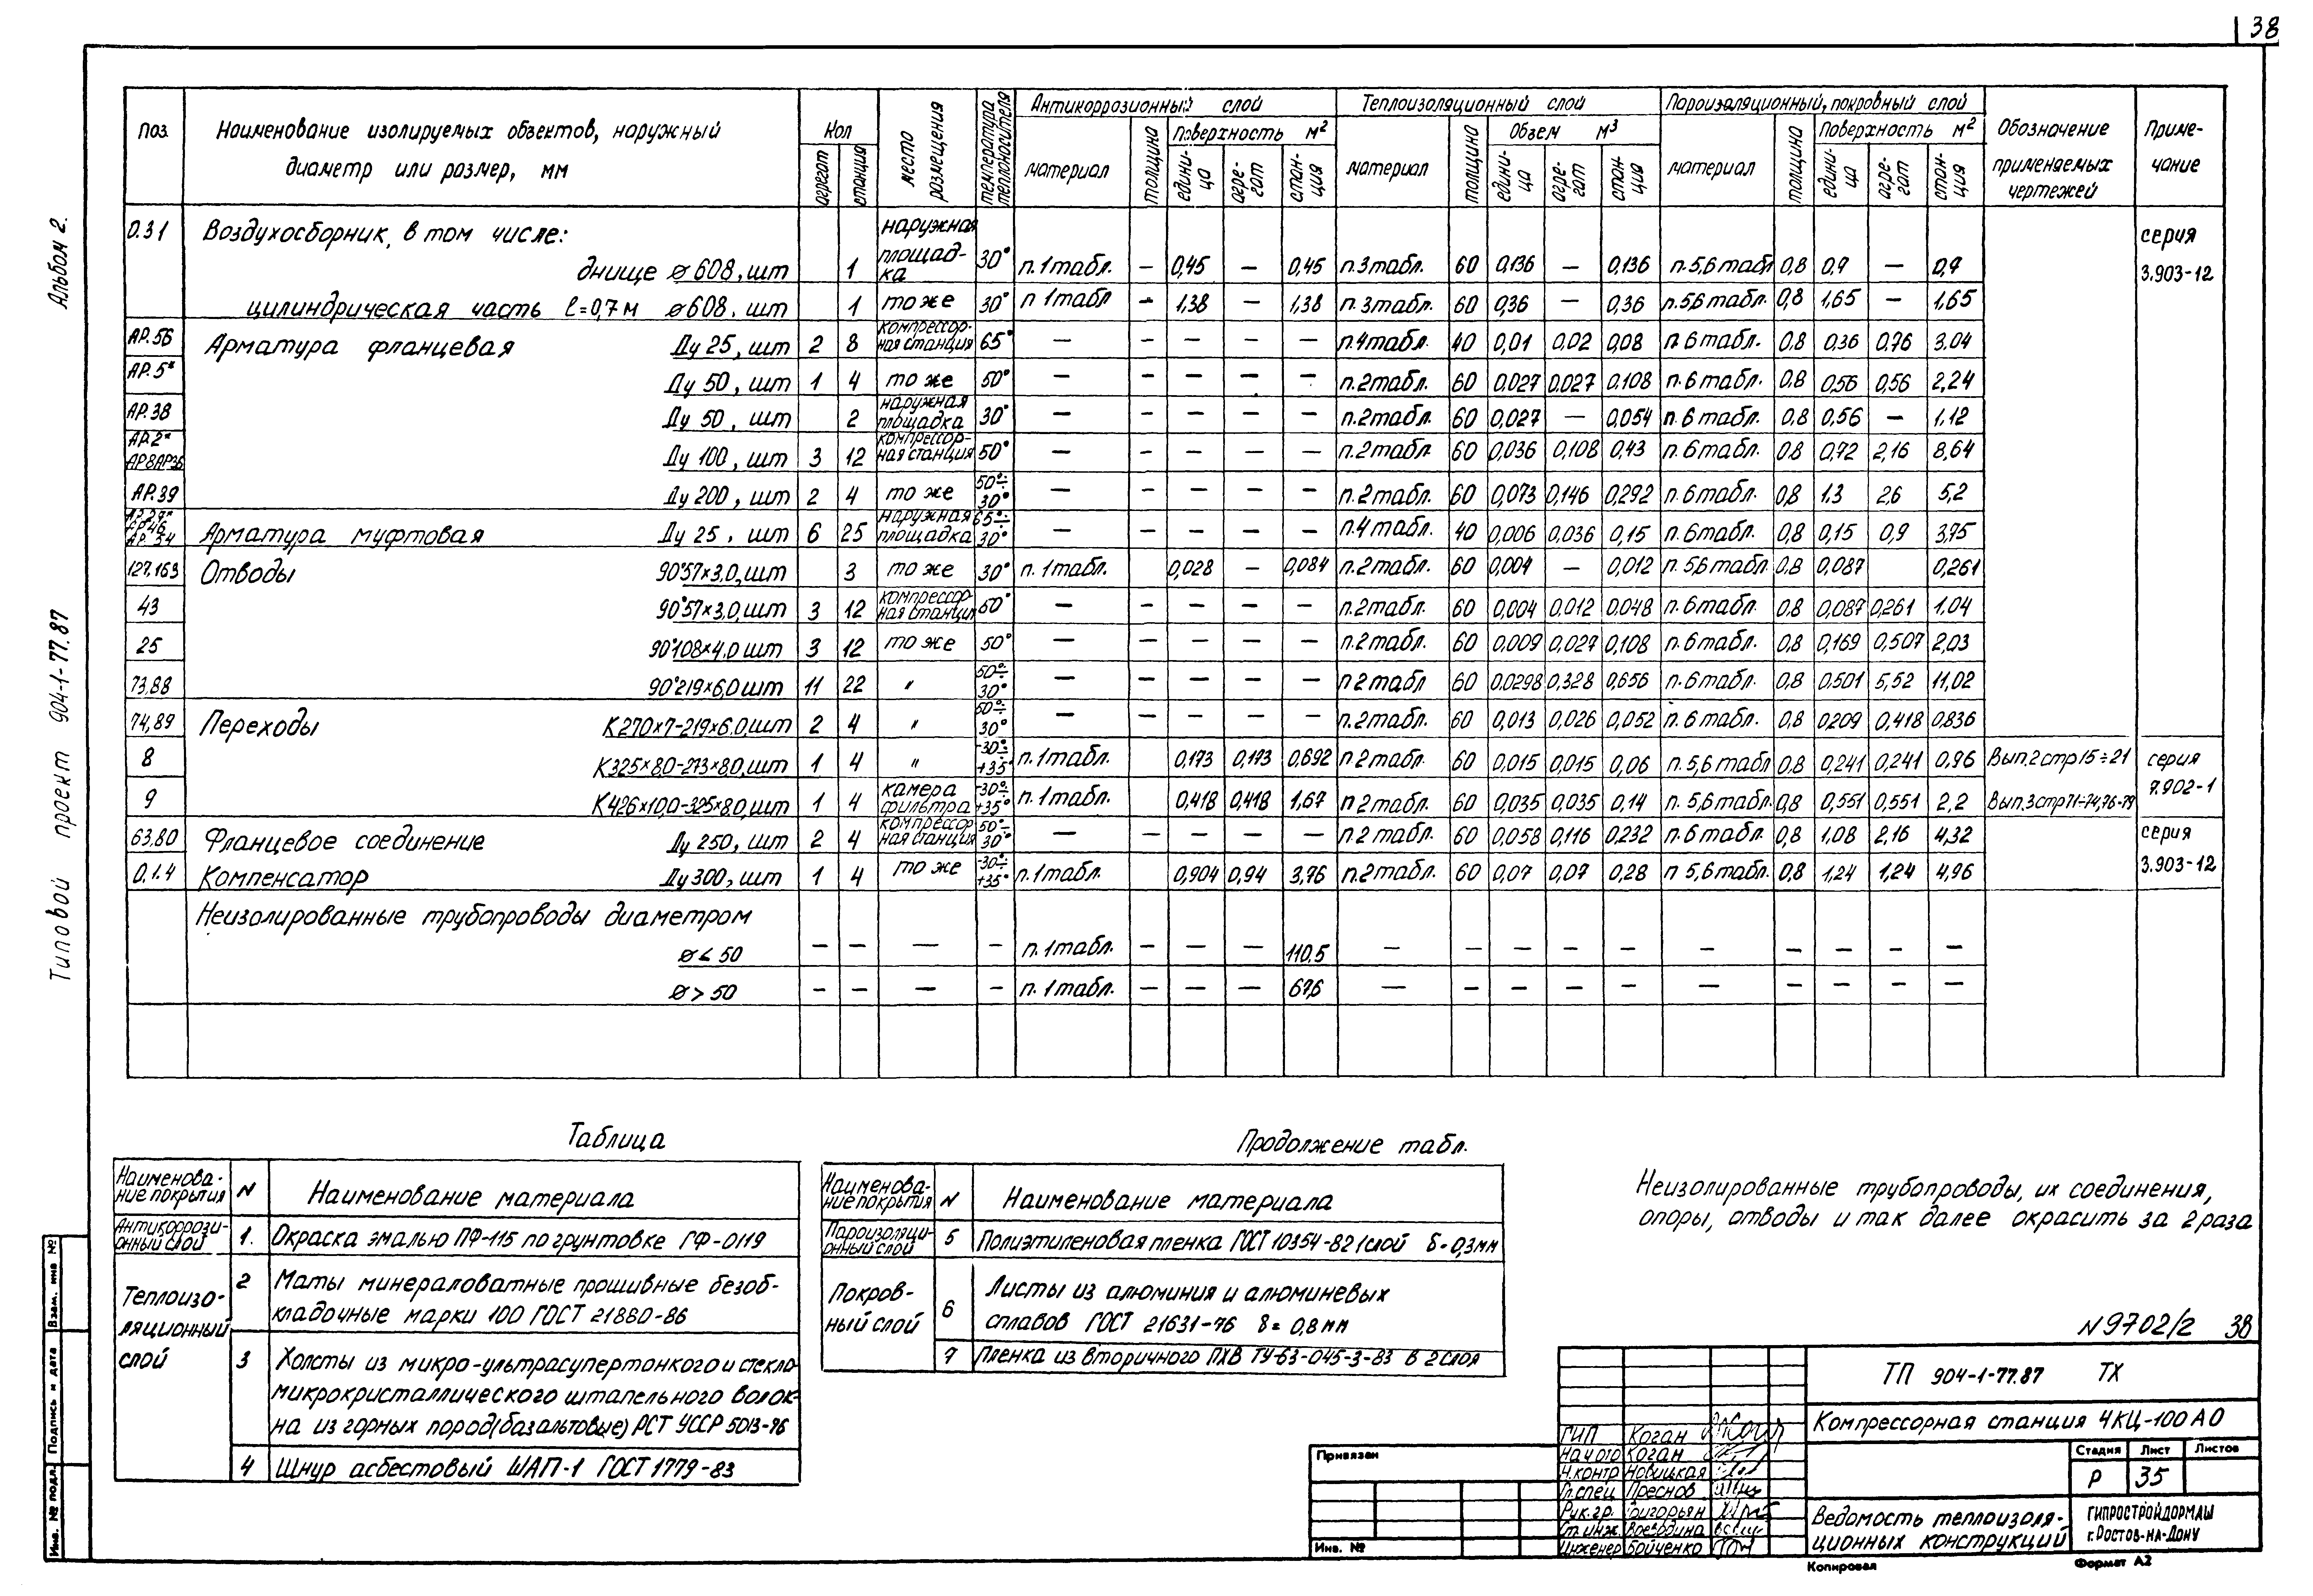 38
Альбом 2.
Типовой проект 904-1-77.87
поз.
Наименование изолируемых объектов, наружный
диаметр или размер, мм
Кол
агрегат
станция
место размещения
температура теплоносителя
Антикоррозионный слой
материал
толщина
Поверхность м2
едини-ца
агре-гат
стан-ция
Теплоизоляционный слой
материал
толщина
Объем м3
едини-ца
агре-гат
стан-ция
Пароизоляционный, покровный слой
материал
толщина
Поверхность м2
едини-ца
агре-гат
стан-ция
Обозначение
применяемых
чертежей
Приме-
чание
0.31 Воздухосборник, в том числе: наружная серия
днище ⌀608, шт 1 площад-ка 30° п.1табл. — 0,45 — 0,45 п.3табл. 60 0,136 — 0,136 п.5,6табл 0,8 0,9 — 0,9 3.903-12
цилиндрическая часть ℓ=0,7м ⌀608, шт 1 то же 30° п 1табл - 1,38 — 1,38 п.3табл. 60 0,36 — 0,36 п.5,6табл. 0,8 1,65 — 1,65
АР.56 Арматура фланцевая Ду 25, шт 2 8 компрессор-ная станция 65° — — — — — п.4табл. 40 0,01 0,02 0,08 п.6табл. 0,8 0,36 0,76 3.04
АР.5* Ду 50, шт 1 4 то же 50° — — — — — п.2табл. 60 0.027 0,027 0.108 п.6табл. 0.8 0,56 0,56 2,24
АР.38 Ду 50, шт 2 наружная площадка 30° — — — — — п.2табл. 60 0,027 — 0.054 п.6табл. 0,8 0,56 — 1,12
АР.2* АР8АР36 Ду 100, шт 3 12 компрессор-ная станция 50° — — — — — п.2табл. 60 0,036 0,108 0,43 п.6табл. 0.8 0,72 2,16 8,64
АР.39 Ду 200, шт 2 4 то же 50°÷30° — — — — — п.2табл. 60 0,073 0,146 0,292 п.6табл. 0,8 1.3 2.6 5,2
АР.46 АР.54 Арматура муфтовая Ду 25, шт 6 25 наружная площадка 65°÷30° — — — — — п.4табл. 40 0,006 0,036 0,15 п.6табл. 0,8 0,15 0,9 3,75
127,163 Отводы 90°57×3,0,шт 3 то же 30° п.1табл. 0,028 — 0,084 п.2табл. 60 0,004 — 0,012 п.5,6табл 0,8 0,087 0,261
43 90°57×3,0,шт 3 12 компрессор-ная станция 50° — — — — — п.2табл. 60 0,004 0,012 0,048 п.6табл. 0,8 0,087 0,261 1,04
25 90°108×4.0 шт 3 12 то же 50° — — — — — п.2табл. 60 0,009 0,027 0,108 п.6табл. 0,8 0,169 0,507 2,03
73,88 90°219×6,0 шт 11 22 〃 50°÷30° — — — — — п 2табл 60 0.0298 0,328 0,656 п.6табл. 0,8 0.501 5,52 11,02
74,89 Переходы К270×7-219×6.0,шт 2 4 〃 50°÷30° — — — — — п.2табл. 60 0,013 0,026 0,052 п.6табл. 0,8 0209 0,418 0,836
8 К325×8.0-273×8.0, шт 1 4 〃 -30°÷+35° п.1табл. 0,173 0,173 0,692 п 2табл. 60 0,015 0,015 0,06 п.5,6табл 0,8 0,241 0,241 0,96 Вып.2стр15÷21 серия
9 К426×10,0-325×8.0,шт 1 4 камера фильтра -30°÷+35° п.1табл. 0,418 0,418 1,67 п 2табл. 60 0,035 0,035 0,14 п.5,6табл. 0,8 0,551 0,551 2,2 Вып.3стр71-74,76-79 7.902-1
63.80 Фланцевое соединение Ду 250, шт 2 4 компрессор-ная станция 50°÷30° — — — — — п 2табл. 60 0,058 0,116 0.232 п.6табл. 0,8 1,08 2,16 4,32 серия
0.1.4 Компенсатор Ду300, шт 1 4 то же -30°÷+35° п.1табл. 0,904 0,94 3,76 п.2табл. 60 0,07 0,07 0,28 п 5,6табл. 0,8 1,24 1,24 4,96 3.903-12
Неизолированные трубопроводы диаметром
⌀ ≤ 50 — — — — п.1табл. — — — 110,5 — — — — — — — — — —
⌀ > 50 — — — — п.1табл. — — — 67,6 — — — — — — — — — —
Таблица
Наименова-
ние покрытия N Наименование материала
Антикоррози-
онный слой 1. Окраска эмалью ПФ-115 по грунтовке ГФ-0119
Теплоизо-
ляционный
слой
2 Маты минераловатные прошивные безоб-
кладочные марки 100 ГОСТ 21880-86
3 Холсты из микро-ультрасупертонкого и стекло
микрокристаллического штапельного волок-
на из горных пород(базальтовые) РСТ УССР 5013-76
4 Шнур асбестовый ШАП-1 ГОСТ 1779-83
Продолжение табл.
Наименова-
ние покрытия N Наименование материала
Пароизоляци-
онный слой 5 Полиэтиленовая пленка ГОСТ 10354-82 1слой δ=0,3мм
Покров-
ный слой
6 Листы из алюминия и алюминевых
сплавов ГОСТ 21631-76 δ=0,8мм
7 Пленка из вторичного ПХВ ТУ-63-045-3-83 в 2 слоя
Неизолированные трубопроводы, их соединения,
опоры, отводы и так далее окрасить за 2 раза
N 9702/2 38
ТП 904-1-77.87 ТХ
Компрессорная станция 4КЦ-100АО
Стадия Лист Листов
Р 35
Ведомость теплоизоля-
ционных конструкций
ГИПРОСТРОЙДОРМАШ
г.Ростов-на-Дону
ГИП Коган
Нач ото Коган
Н.контр Новицкая
Гл.спец Преснов
Рук.гр. Григорьян
Ст.инж. Воеводина
Инженер Бойченко
Привязан
Инв. №
Копировал
Формат А2
Взам. инв №
Подпись и дата
Инв. № подл.